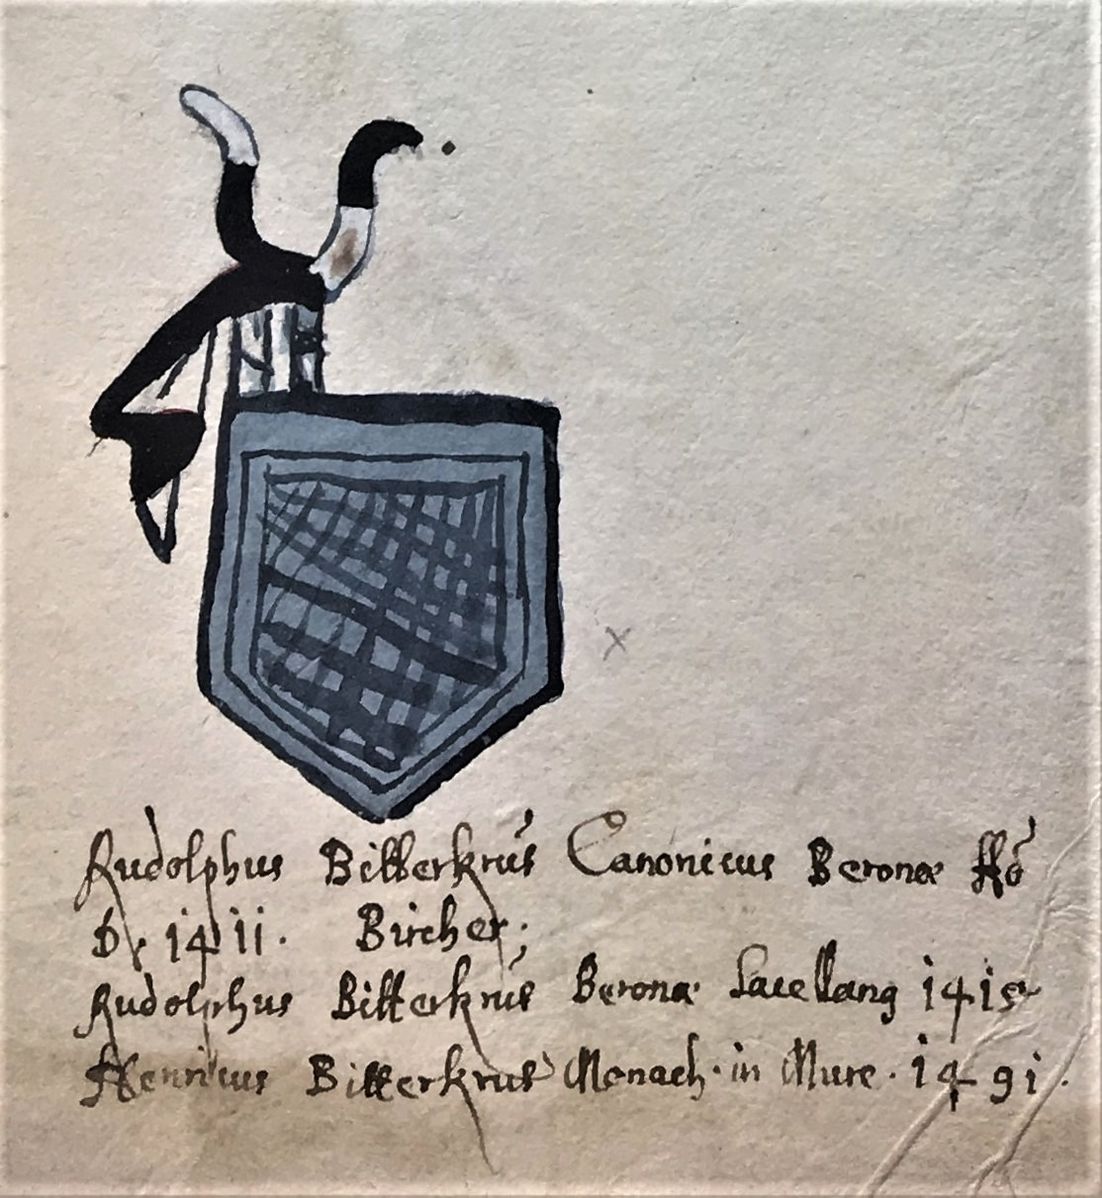 Rudolphus Bitterkrus Canonicus Beronæ
D. 1411. Bircher;
Rudolphus Bitterkrus Beronæ 1415
Henricus Bitterkrus Monach. in Mure. 1491.